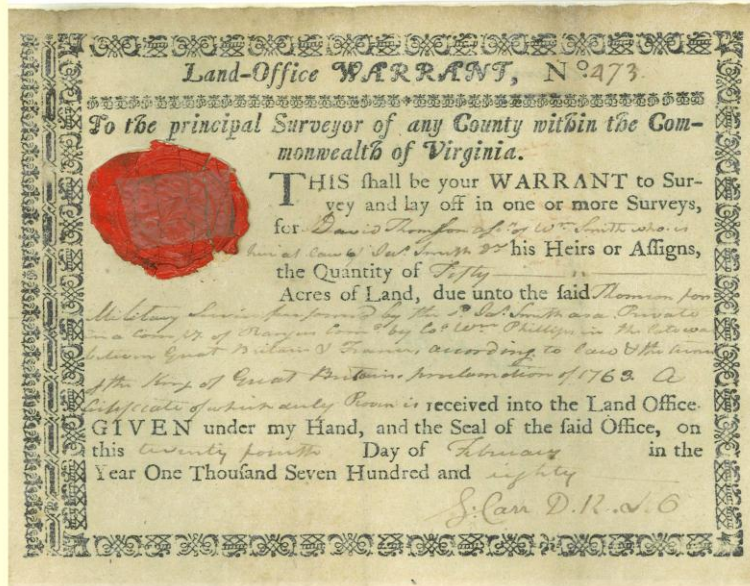 Land-Office WARRANT, No. 473.
To the principal Surveyor of any County within the Com-
monwealth of Virginia.
THIS ſhall be your WARRANT to Sur-
vey and lay off in one or more Surveys,
for David Thomſon aſſee of Wm. Smith who is
heir at law of Jas. Smith Decd his Heirs or Aſſigns,
the Quantity of Fifty
Acres of Land, due unto the ſaid Thomson for
Military Service performed by the sd. Jas. Smith as a Private
in a Compy. of Rangers Comd. by Co Wm. Phillips in the late war
between Great Britain & France, according to law & the
of the King of Great Britains proclamation of 1763. A
Certificate of which duly Proven is received into the Land Office.
GIVEN under my Hand, and the Seal of the ſaid Office, on
this twenty fourth Day of February in the
Year One Thouſand Seven Hundred and eighty
Carr D. R. L. O